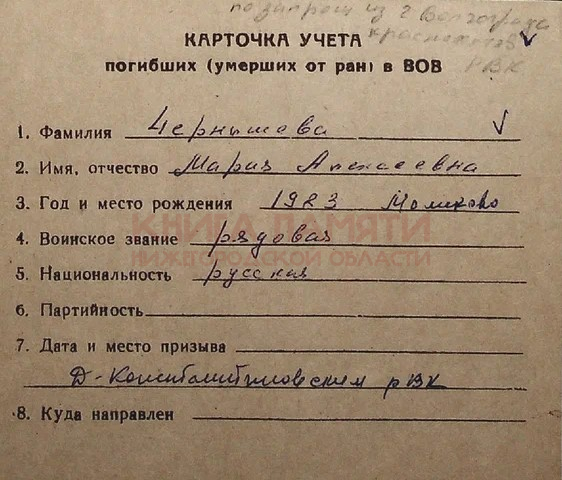 по запросу из г Волгограда
красноокт
РВК
КАРТОЧКА УЧЕТА
погибших (умерших от ран) в ВОВ
1. Фамилия Чернышева
2. Имя, отчество Мария Алексеевна
3. Год и место рождения 1923
4. Воинское звание рядовая
КНИГА ПАМЯТИ
НИЖЕГОРОДСКОЙ ОБЛАСТИ
5. Национальность русская
6. Партийность
7. Дата и место призыва
Д-Константиновским РВК
8. Куда направлен